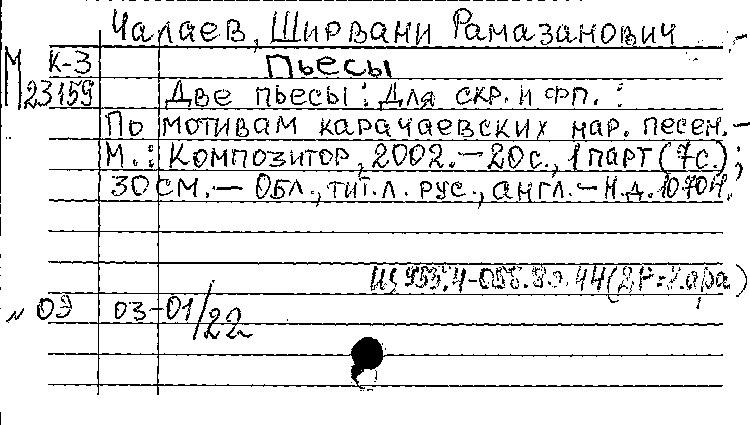 Чалаев, Ширвани Рамазанович
М К-3 Пьесы
23159 Две пьесы: Для скр. и фп. :
По мотивам карачаевских нар. песен. –
М.: Композитор, 2002. – 20 с., 1 парт (7с.);
30 см. – Обл., тит. л. рус., англ. – Н.д. 10704.
09 03-01/22